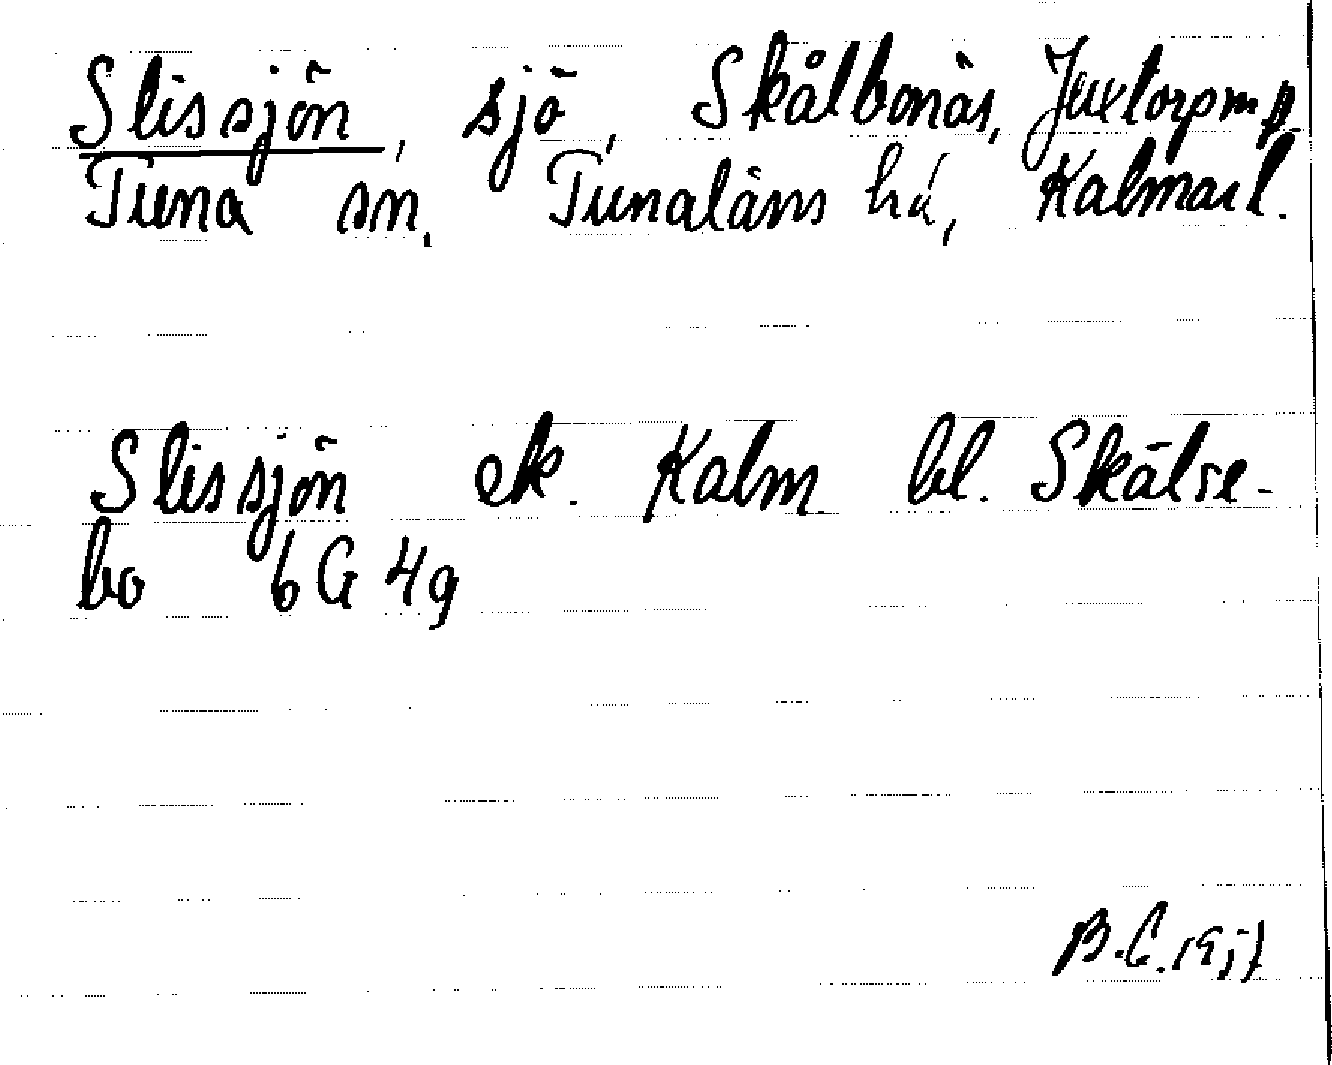 Slissjön, sjö, Skålbonäs, Juxtorpm fl
Tuna sn, Tunaläns hd, Kalmar l.
Slissjön ek. Kalm bl. Skälse-
bo 6G 4g
B.C.